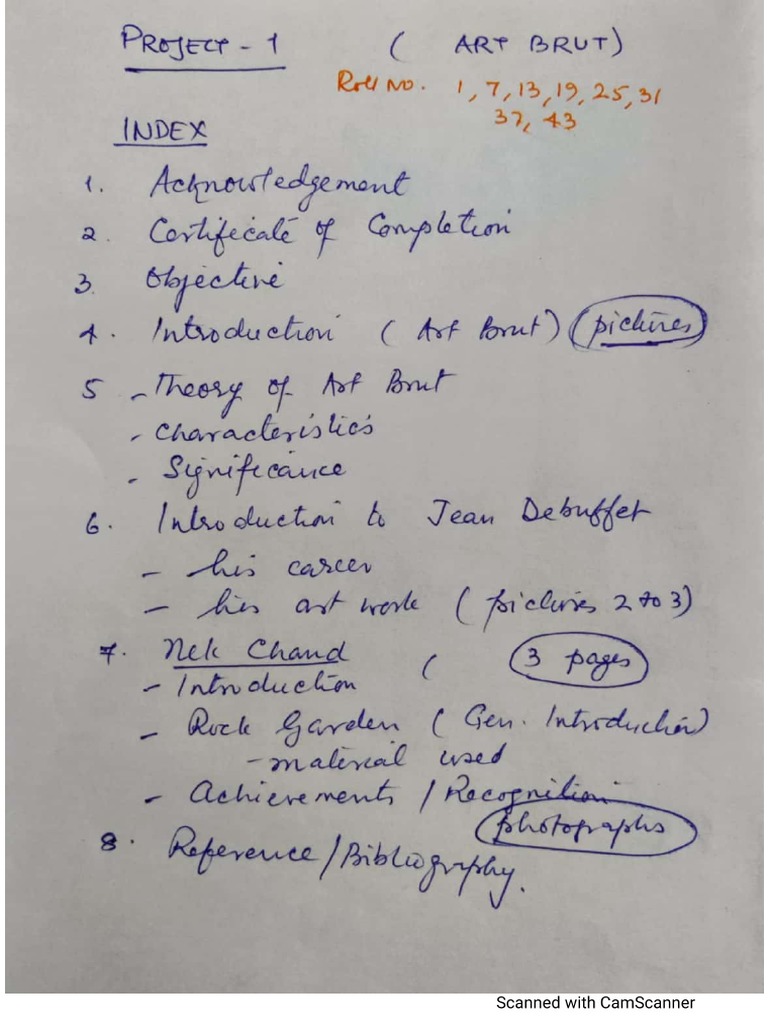 PROJECT - 1 ( ART BRUT)
Roll No. 1, 7, 13, 19, 25, 31
37, 43
INDEX
1. Acknowledgement
2. Certificate of Completion
3. Objective
4. Introduction ( Art Brut) (pictures)
5 - Theory of Art Brut
- Characteristics
- Significance
6. Introduction to Jean Debuffet
- his career
- his art work ( pictures 2 to 3)
7. Nek Chand ( 3 pages
- Introduction
- Rock Garden ( Gen. Introduction)
- material used
- Achievements / Recognition
photographs
8. Reference/Bibliography.
Scanned with CamScanner